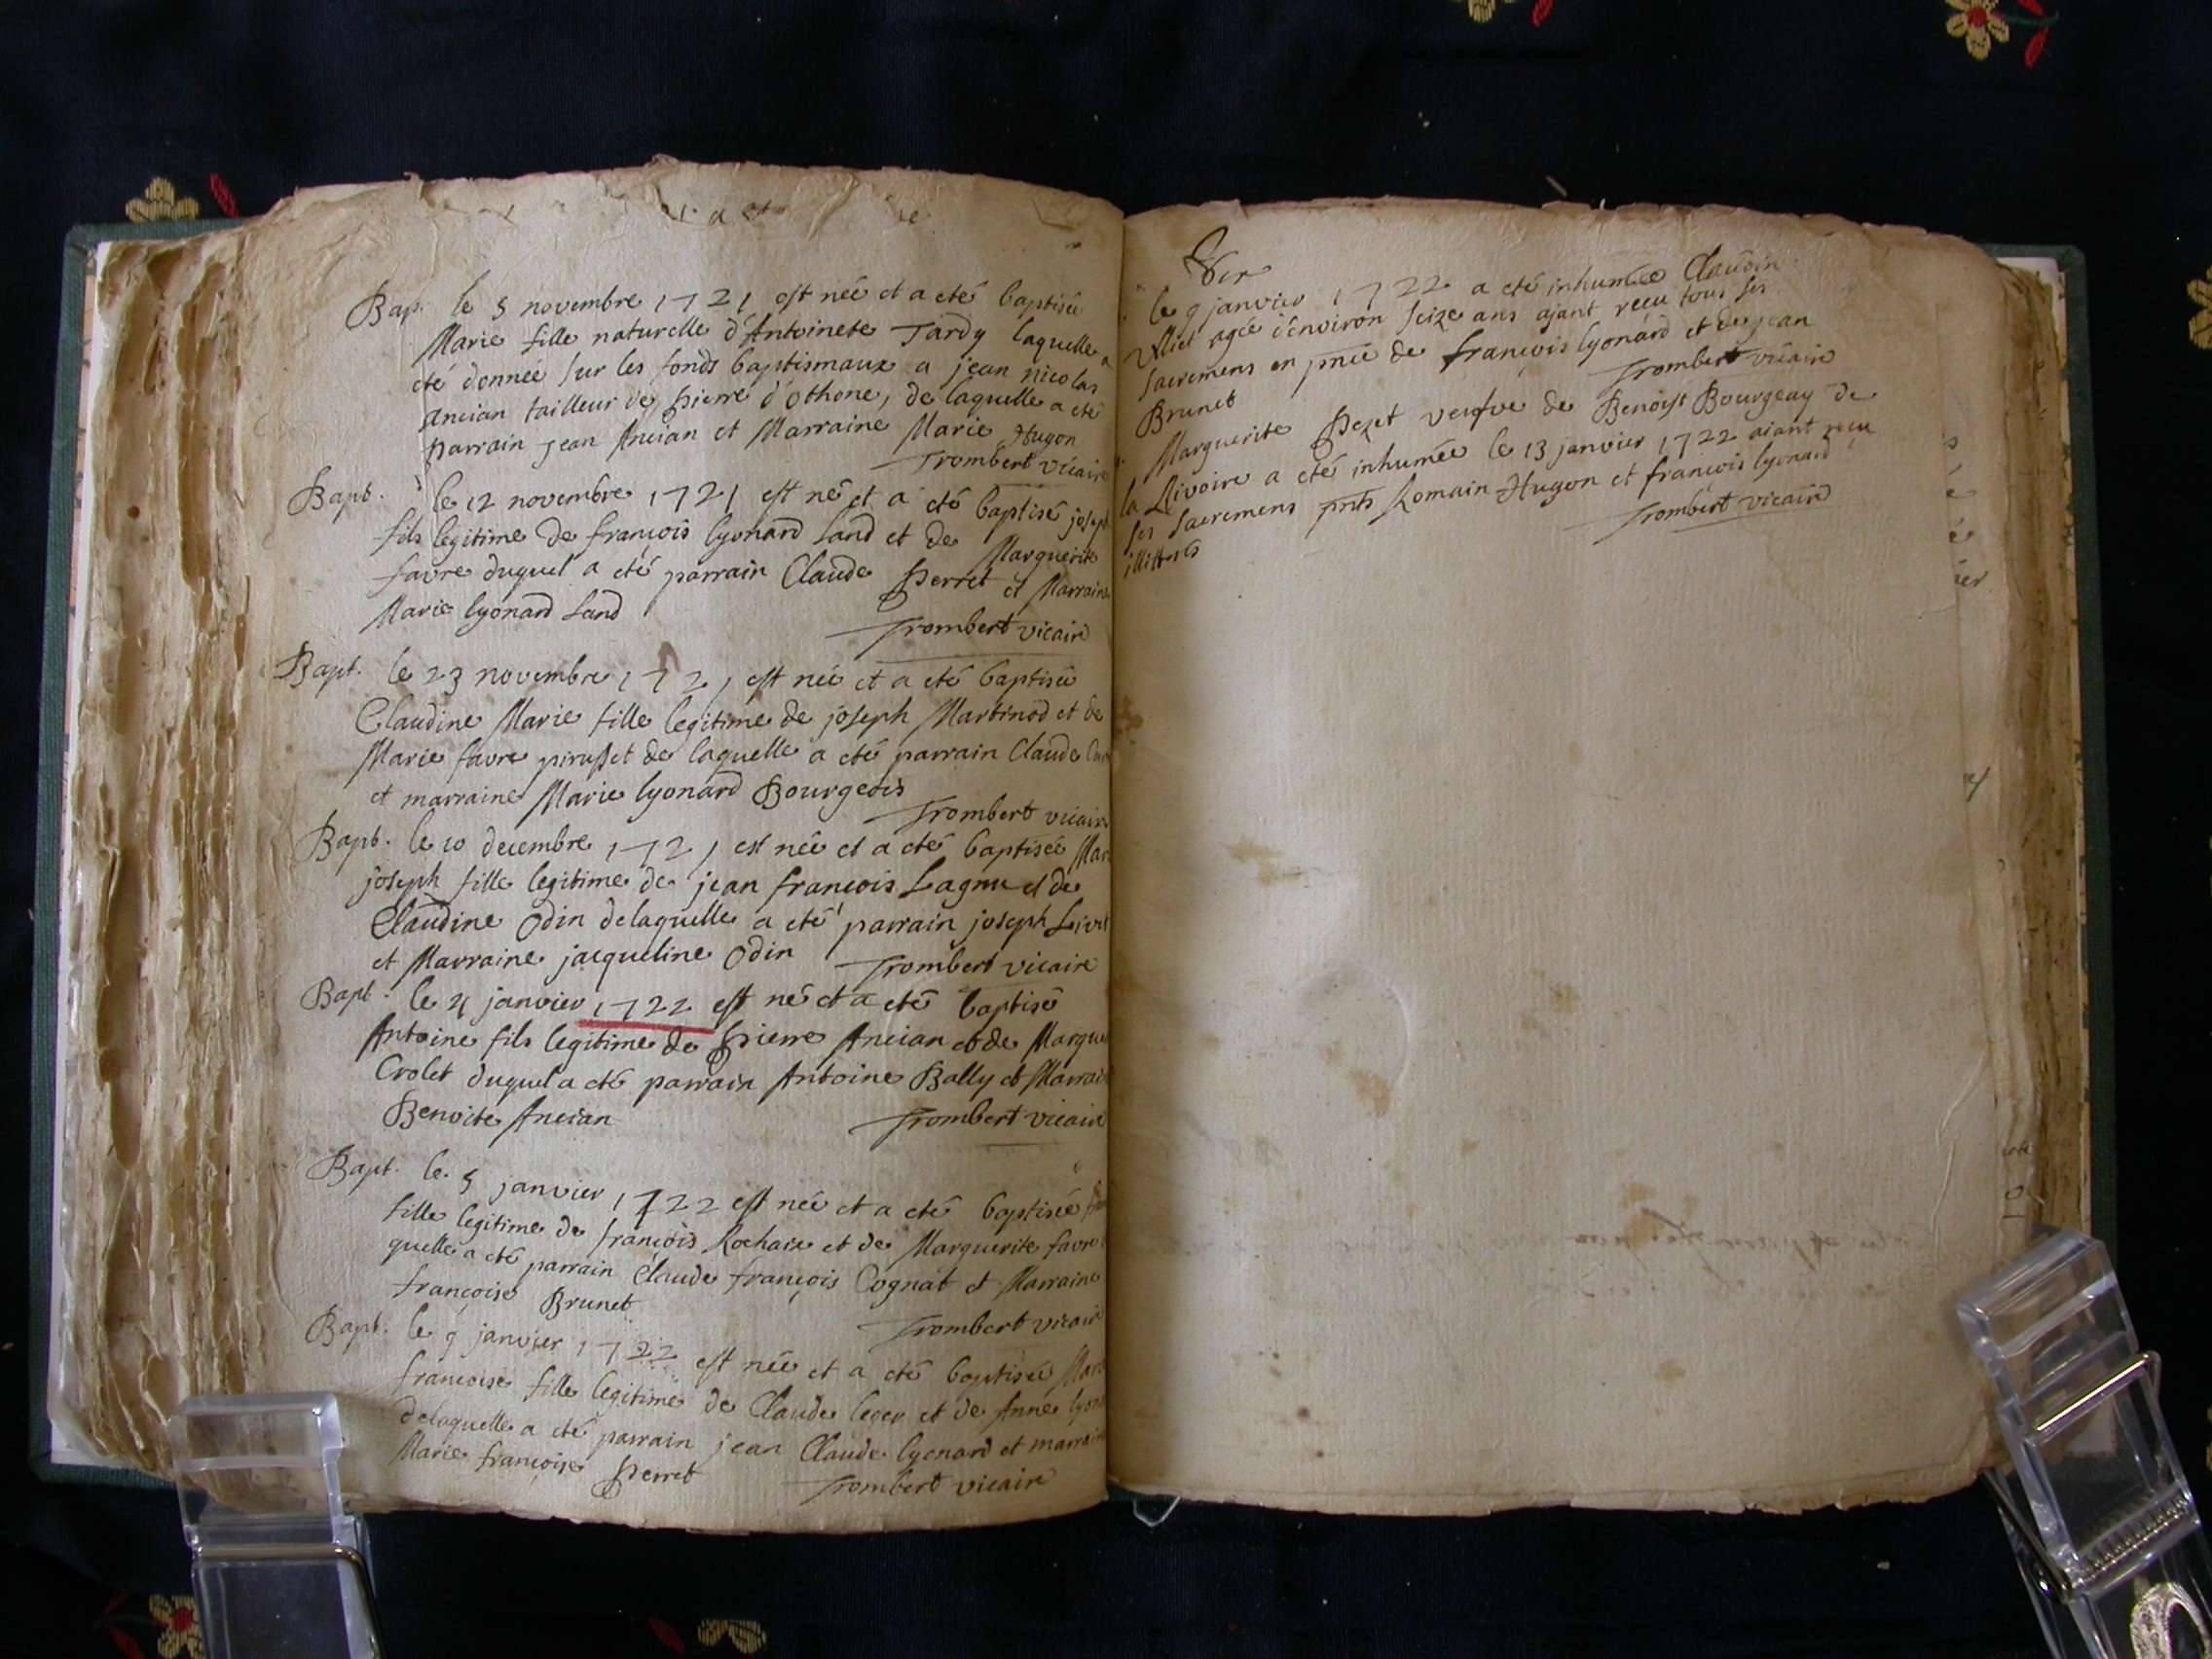 Bap. le 5 novembre 1721 est née et a eté baptisée
Marie fille naturelle d'Antoinete Tardy laquelle a
eté donnée sur les fonds baptismaux a jean nicolas
Ancian tailleur de pierre d'Othone, de laquelle a eté
parrain jean Ancian et Marraine Marie Hugon
Trombert vicaire
Bapt. le 12 novembre 1721 est né et a eté baptisé joseph
fils legitime de françois lyonard Land et de Marguerite
favre duquel a eté parrain Claude Perret et Marraine
Marie lyonard Land
Trombert vicaire
Bapt. le 23 novembre 1721 est née et a eté baptisée
Claudine Marie fille legitime de joseph Martinod et de
Marie favre pirasset de laquelle a eté parrain Claude
et marraine Marie lyonard Bourgeois
Trombert vicaire
Bapt. le 10 decembre 1721 est née et a eté baptisée
joseph fille legitime de jean francois Lagnu et de
Claudine Odin delaquelle a eté parrain joseph Livet
et Marraine jacqueline Odin
Trombert vicaire
Bapt. le 4 janvier 1722 est né et a eté baptisé
Antoine fils legitime de Pierre Ancian et de
Crolet duquel a eté parrain Antoine Bally et
Benoite Ancian
Trombert vicaire
Bapt. le 5 janvier 1722 est née et a eté baptisée
fille legitime de françois Rochaix et de Marguerite favre
quelle a eté parrain Claude françois Cognat et Marraine
françoise Brunet
Trombert vicaire
Bapt. le 9 janvier 1722 est née et a eté baptisée
francoise fille legitime de Claude leger et de Anne
delaquelle a eté parrain jean Claude lyonard et
Marie françoise Perret
Trombert vicaire
le 9 janvier 1722 a eté inhumée Claudine
agée d'environ seize ans ajant reçu tous ses
sacremens en pnce de françois lyonard et de jean
Brunet
Trombert vicaire
Marguerite Pezet veufve de Benoist Bourgeay de
la Rivoire a eté inhumée le 13 janvier 1722 aiant reçu
ses sacremens pnts Romain Hugon et françois lyonard
illitterés
Trombert vicaire